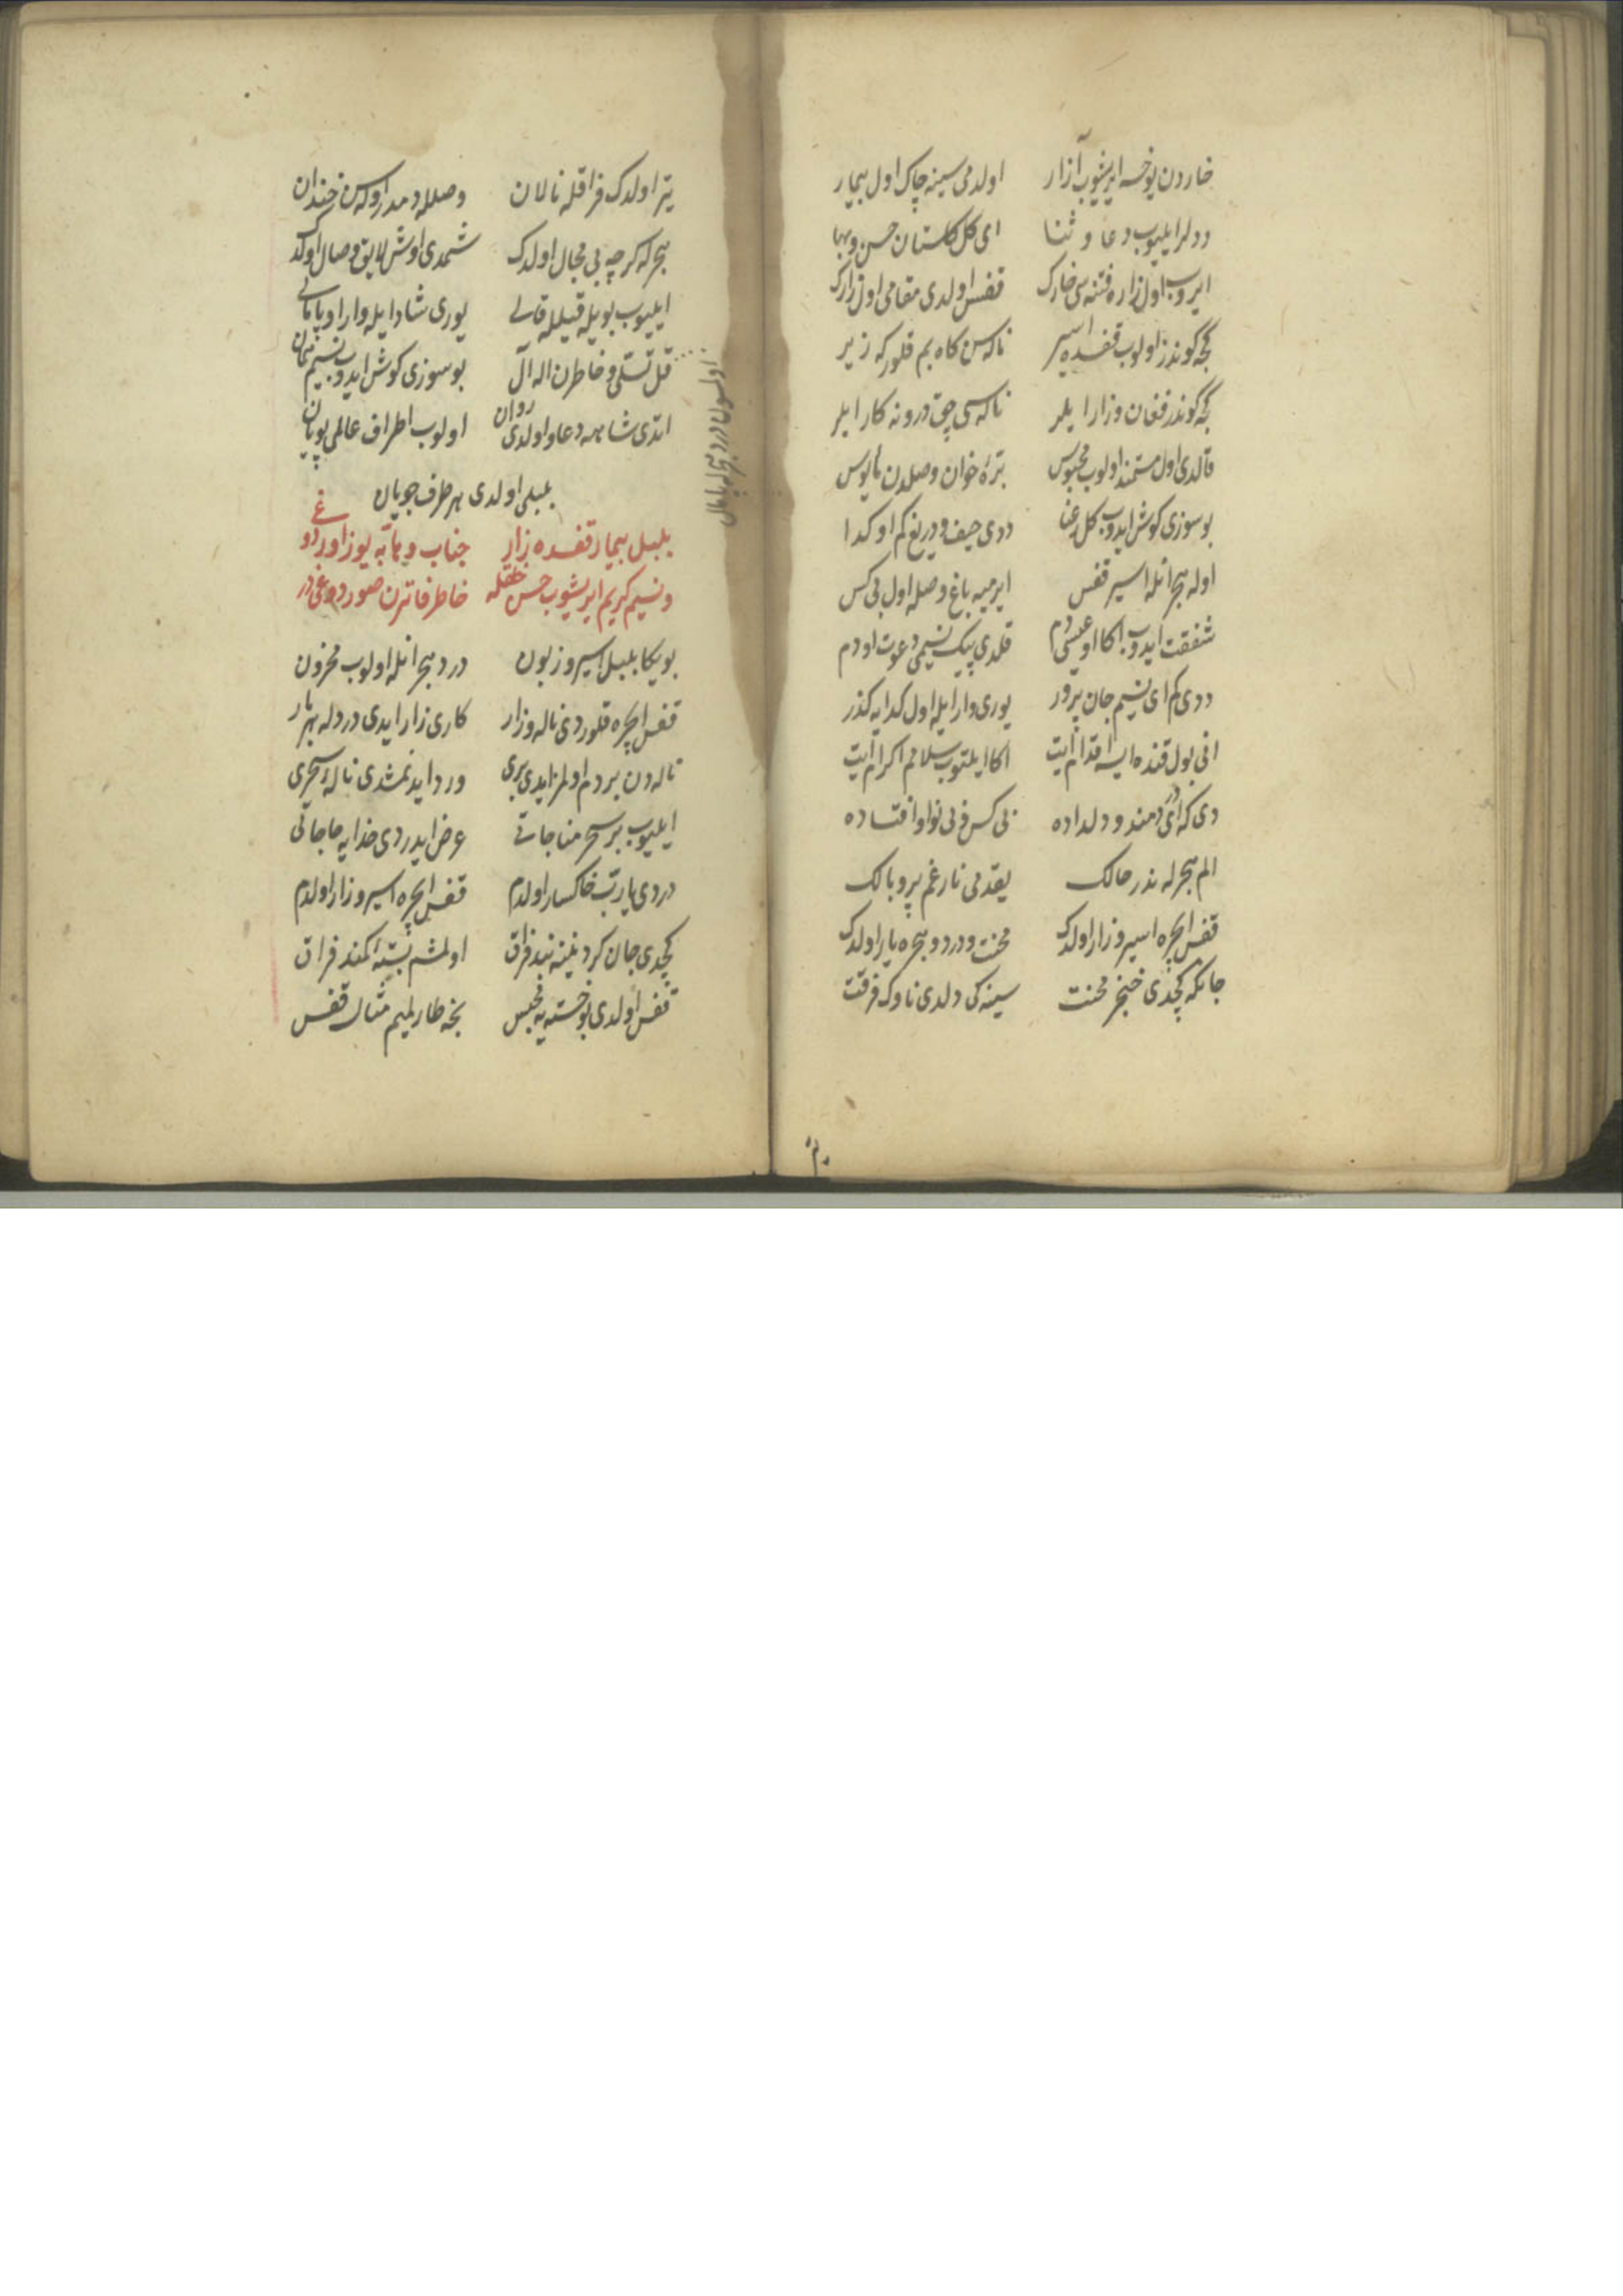 خاردن بو خسته ایریشوب آزار اولدمی سینه چاک اول بیمار
ددلر ایلیوب دعا و ثنا ای گل گلستان حسن و بها
ایروب اول زاره فتنه سی خارک قفس اولدی مقامی اول زارک
گجه کوندز اولوب قفسده اسیر ناله سن گاه بم قلور که زیر
گجه کوندز فغان و زار ایلر ناله سی چق درونه کار ایلر
قالدی اول مستمند اولوب محبوس بتره خوان وصلدن مأیوس
بو سوزی کوش ایدوب گل رعنا ددی حیف و دریغ کم او گدا
اوله هجرانله اسیر قفس ایرمیه باغ وصله اول بی کس
شفقت ایدوب اکا او عیسی دم قلدی پیک نسیمی دعوت او دم
ددی کم ای نسیم جان پرور یوری وار ایله اول گدایه گذر
انی بول قنده ایسه اقدام ایت اکا ایلتوب سلامم اکرام ایت
دی که ای دردمند و دلداده بی کس و بی نوا و افتاده
الم هجرله ندر حالک یقدمی نار غم پر و بالک
قفس ایچره اسیر و زار اولدک محنت و درد و هجره یار اولدک
جانکه گچدی خنجر محنت سینه کی دلدی ناوک فرقت
یتر اولدک فراقله نالان وصلله دمدر اوله سن خندان
هجرله گرچه بی مجال اولدک شمدی اوش لایق وصال اولدک
ایلیوب بویله قیلله قالی یوری شاد ایله وار او پامالی
قل تسلی و خاطرن اله آل بو سوزی کوش ایدوب نسیم همان
اتدی شاهه دعا و اولدی روان اولوب اطراف عالمی پویان
بلبلی اولدی هر طرف جویان
بلبل بیمار قفسده زار جناب وهابه یوز اوردوغی
و نسیم کریم ایریشوب حسن خلقله خاطر فاترن صوردوغیدر
بو یکا بلبل اسیر و زبون درد هجرانله اولوب محزون
قفس ایچره قلوردی ناله و زار کاری زار ایدی دردله هر بار
ناله دن بر دم اولمز ایدی بری ورد ایدنمشدی ناله سحری
ایلیوب بر سحر مناجاتی عرض ایدردی خدایه حاجاتی
دردی یارب خاکسار اولدم قفس ایچره اسیر و زار اولدم
گچدی جان گردنینه بند فراق اولمشم بسته کمند فراق
قفس اولدی بو خسته یه محبس نجه طار لمیم مثال قفس